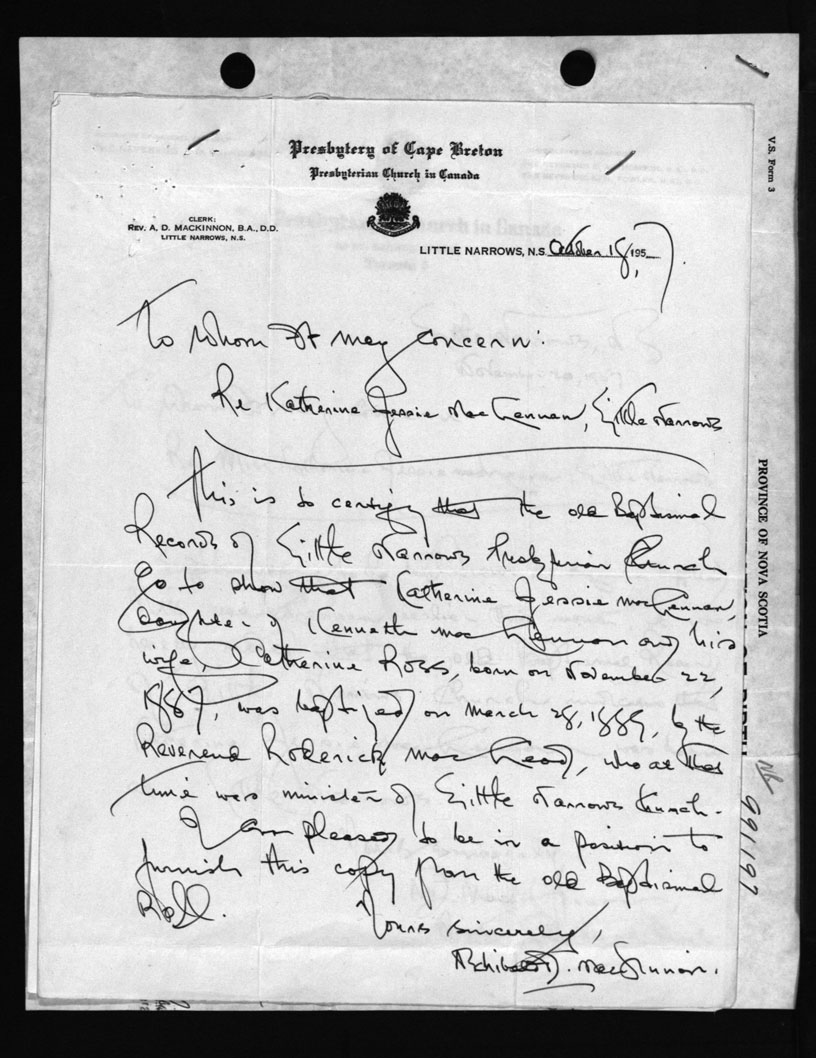 Presbytery of Cape Breton
Presbyterian Church in Canada
CLERK:
REV. A. D. MACKINNON, B.A., D.D.
LITTLE NARROWS, N.S.
LITTLE NARROWS, N.S. October 18, 1957.
To Whom It may concern:
Re Katherine Jessie MacLennan, Little Narrows
This is to certify that the old Baptismal
Records of Little Narrows Presbyterian Church
go to show that Catherine Jessie MacLennan,
daughter of Kenneth MacLennan and his
wife, Catherine Ross, born on November 22,
1887, was baptized on March 28, 1889, by the
Reverend Roderick MacLeod, who at that
time was minister of Little Narrows Church.
I am pleased to be in a position to
furnish this copy from the old Baptismal
Roll.
Yours sincerely,
Archibald D. MacKinnon.
V.S. Form 3
PROVINCE OF NOVA SCOTIA
OF BIRTH
No 991197